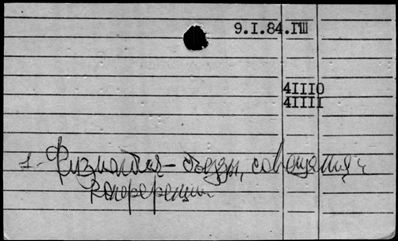 9.I.84.ГШ
4III0
4IIII
1. Физиология – съезды, совещания,
конференции